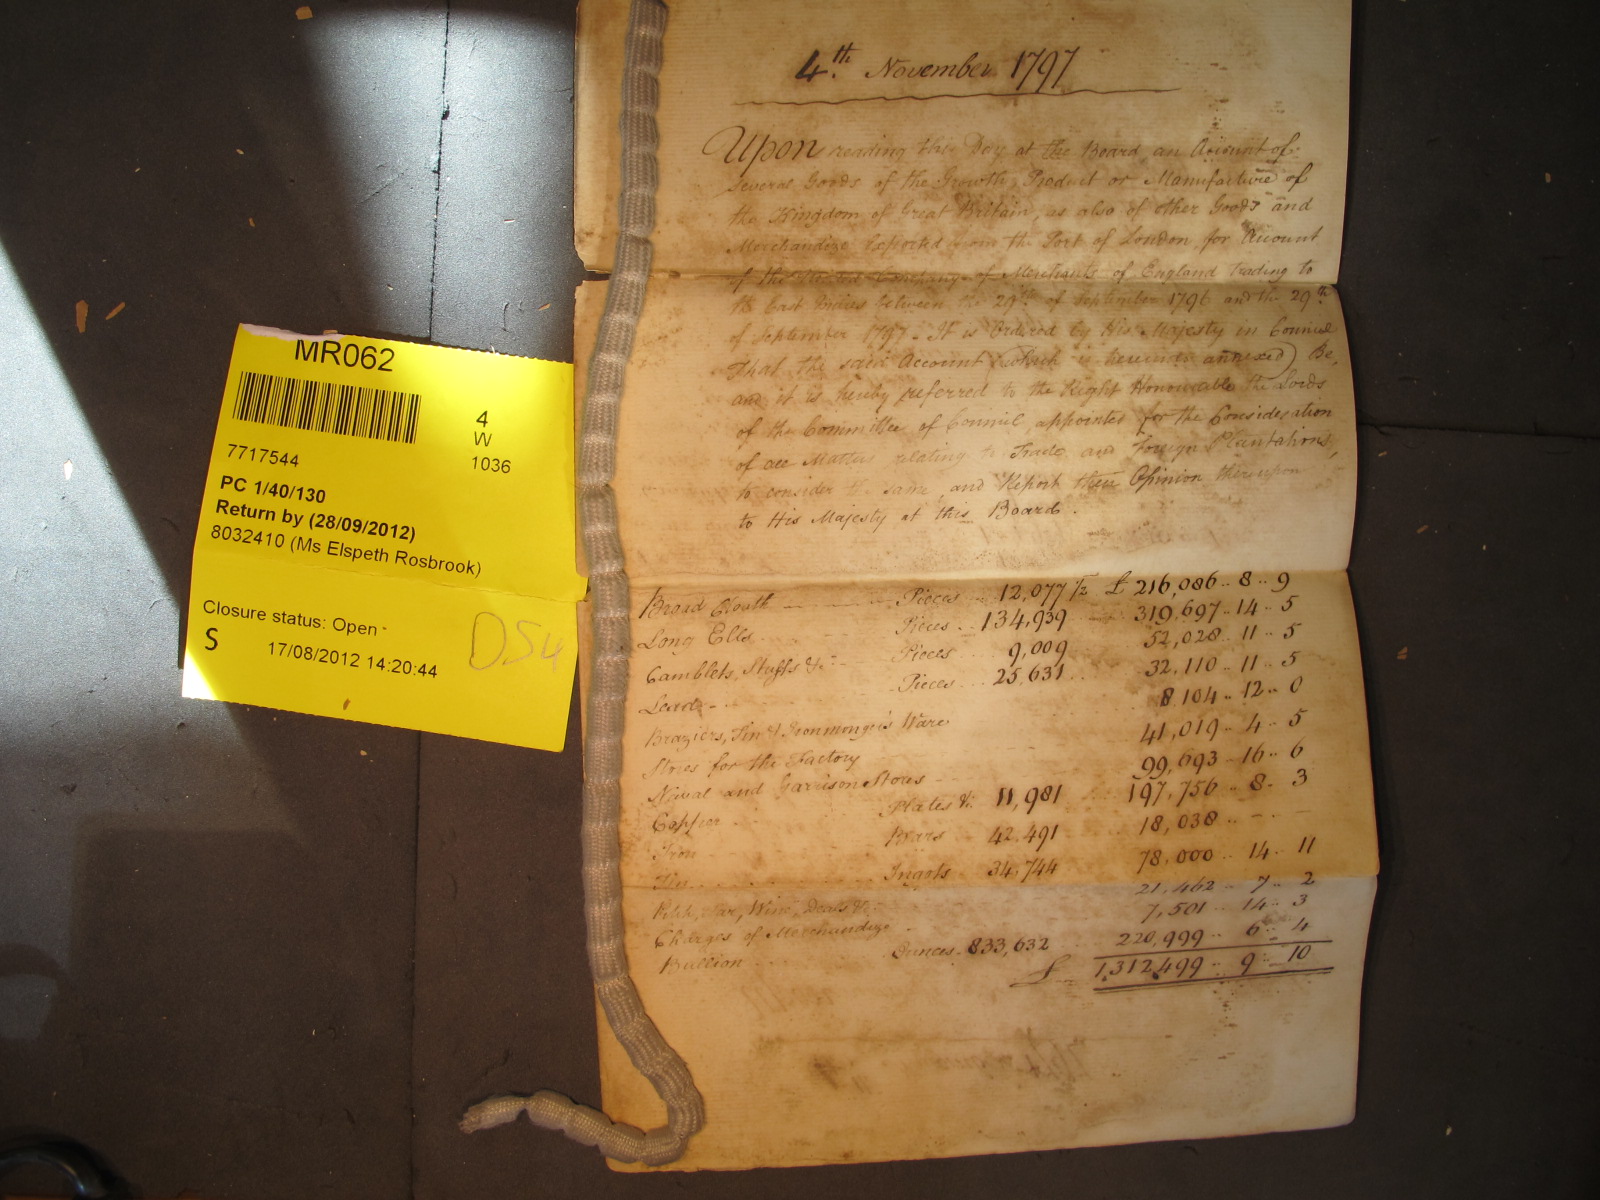 4th November 1797
Upon reading this Day at the Board an Account of
several Goods of the Growth, Product or Manufacture of
the Kingdom of Great Britain, as also of other Goods and
Merchandize Exported from the Port of London for Account
of the United Company of Merchants of England trading to
the East Indies between the 29th of September 1796 and the 29th
of September 1797 - It is Ordered by His Majesty in Council
That the said Account (which is hereunto annexed) Be,
and it is hereby referred to the Right Honourable the Lords
of the Committee of Council, appointed for the Consideration
of all Matters relating to Trade and Foreign Plantations,
to consider the same, and Report their Opinion thereupon
to His Majesty at this Board.
Broad Cloath Pieces 12,077 1/2 £ 216,086 .. 8 .. 9
Long Ells Pieces 134,939 319,697 .. 14 .. 5
Camblets, Stuffs &c. Pieces 9,009 52,028 .. 11 .. 5
Lead Pieces 25,631 32,110 .. 11 .. 5
Braziers, Tin & Ironmongers Ware 8,104 .. 12 .. 0
Stores for the Factory 41,019 .. 4 .. 5
Naval and Garrison Stores 99,693 .. 16 .. 6
Copper Plates &c. 11,981 197,756 .. 8 .. 3
Iron Bars 42,491 18,038 .. - .. -
Tin Ingots 34,744 78,000 .. 14 .. 11
Pitch, Tar, Wine, Deals &c. 21,462 .. 7 .. 2
Charges of Merchandize 7,501 .. 14 .. 3
Bullion Ounces 833,632 220,999 .. 6 .. 4
£ 1,312,499 .. 9 .. 10
MR062
4
W
1036
7717544
PC 1/40/130
Return by (28/09/2012)
8032410 (Ms Elspeth Rosbrook)
Closure status: Open
S
17/08/2012 14:20:44
DS4